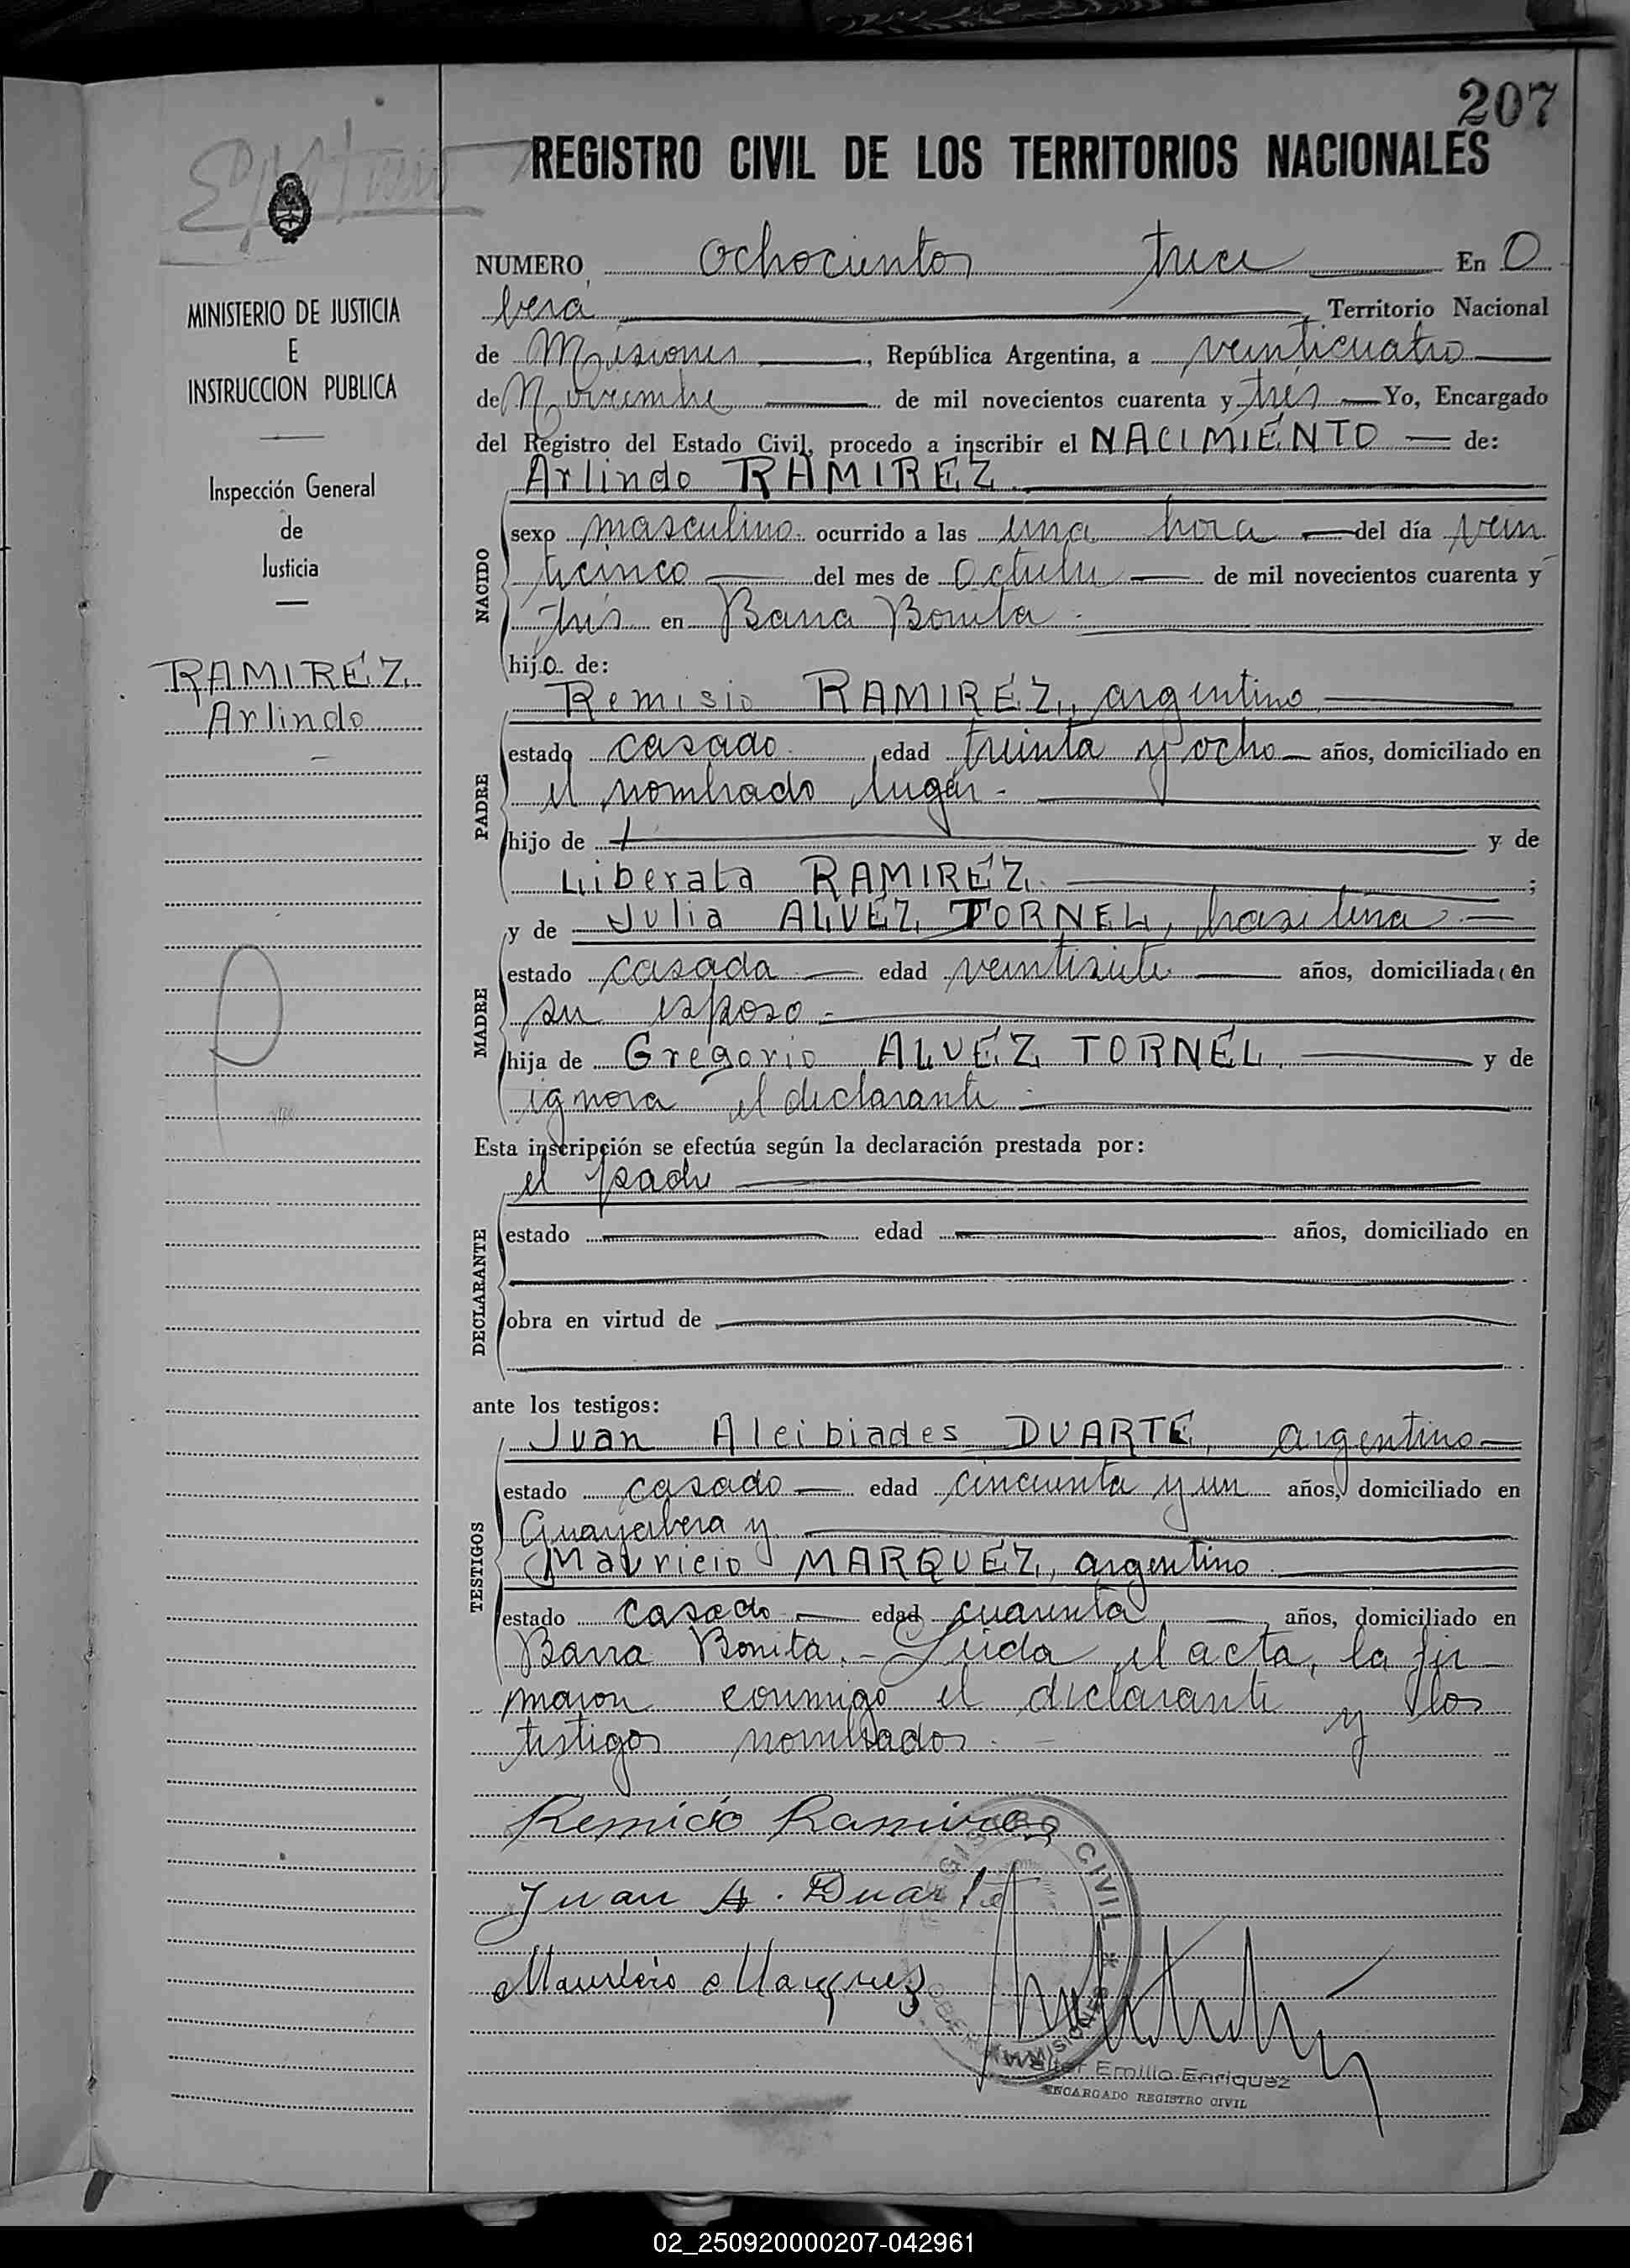 207
REGISTRO CIVIL DE LOS TERRITORIOS NACIONALES
MINISTERIO DE JUSTICIA
E
INSTRUCCION PUBLICA
Inspección General
de
Justicia
RAMIREZ
Arlindo
NUMERO ochocientos trece En O
berá, Territorio Nacional
de Misiones, República Argentina, a veinticuatro
de Noviembre de mil novecientos cuarenta y tres Yo, Encargado
del Registro del Estado Civil, procedo a inscribir el NACIMIENTO de:
Arlindo RAMIREZ
NACIDO
sexo masculino ocurrido a las una hora del día vein
ticinco del mes de Octubre de mil novecientos cuarenta y
tres en Barra Bonita.
hijo de:
Remisio RAMIREZ, argentino
PADRE
estado casado edad treinta y ocho años, domiciliado en
el nombrado lugar.
hijo de y de
Liberata RAMIREZ. ;
y de Julia ALVEZ TORNEL, brasileña
MADRE
estado casada edad veintisiete años, domiciliada en
su esposo.
hija de Gregorio ALVEZ TORNEL y de
ignora el declarante
Esta inscripción se efectúa según la declaración prestada por:
el padre
DECLARANTE
estado edad años, domiciliado en
obra en virtud de
ante los testigos:
Juan Alcibiades DUARTE, argentino
TESTIGOS
estado casado edad cincuenta y un años, domiciliado en
Guayabera y
Mauricio MARQUEZ, argentino
estado casado edad cuarenta años, domiciliado en
Barra Bonita.- Leída el acta, la fir
maron conmigo el declarante y los
testigos nombrados.
Remicio Ramirez
Juan A. Duarte
Mauricio Marquez
REGISTRO CIVIL * MISIONES
Walter Emilio Enriquez
ENCARGADO REGISTRO CIVIL
02_250920000207-042961